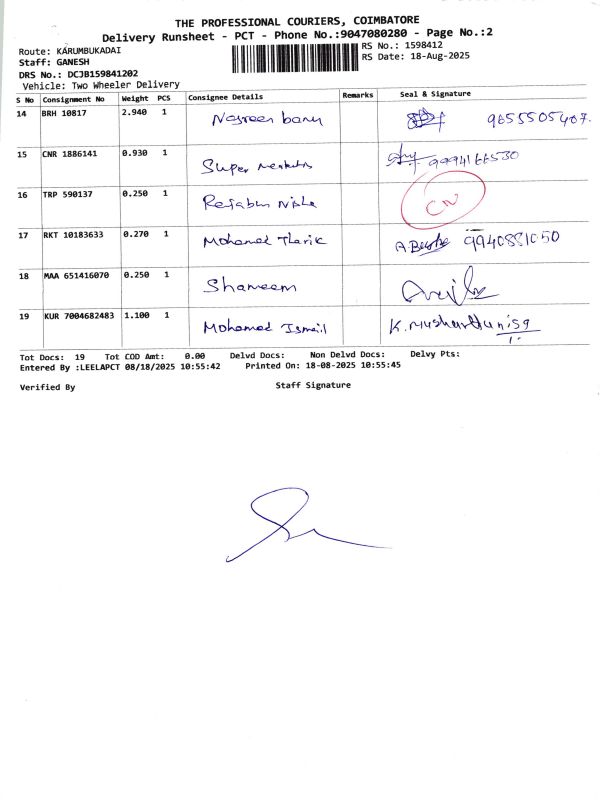 THE PROFESSIONAL COURIERS, COIMBATORE
Delivery Runsheet - PCT - Phone No.:9047080280 - Page No.:2
Route: KARUMBUKADAI
RS No.: 1598412
Staff: GANESH
RS Date: 18-Aug-2025
DRS No.: DCJB159841202
Vehicle: Two Wheeler Delivery
S No Consignment No Weight PCS Consignee Details Remarks Seal & Signature
14 BRH 10817 2.940 1 Nasreen banu 9655505407.
15 CNR 1886141 0.930 1 Super 9994166530
16 TRP 590137 0.250 1 Rejabun Nisha CN
17 RKT 10183633 0.270 1 Mohamed Tharik 9940881050
18 MAA 651416070 0.250 1 Shameem
19 KUR 7004682483 1.100 1 Mohamed Ismail
Tot Docs: 19 Tot COD Amt: 0.00 Delvd Docs: Non Delvd Docs: Delvy Pts:
Entered By :LEELAPCT 08/18/2025 10:55:42 Printed On: 18-08-2025 10:55:45
Verified By Staff Signature